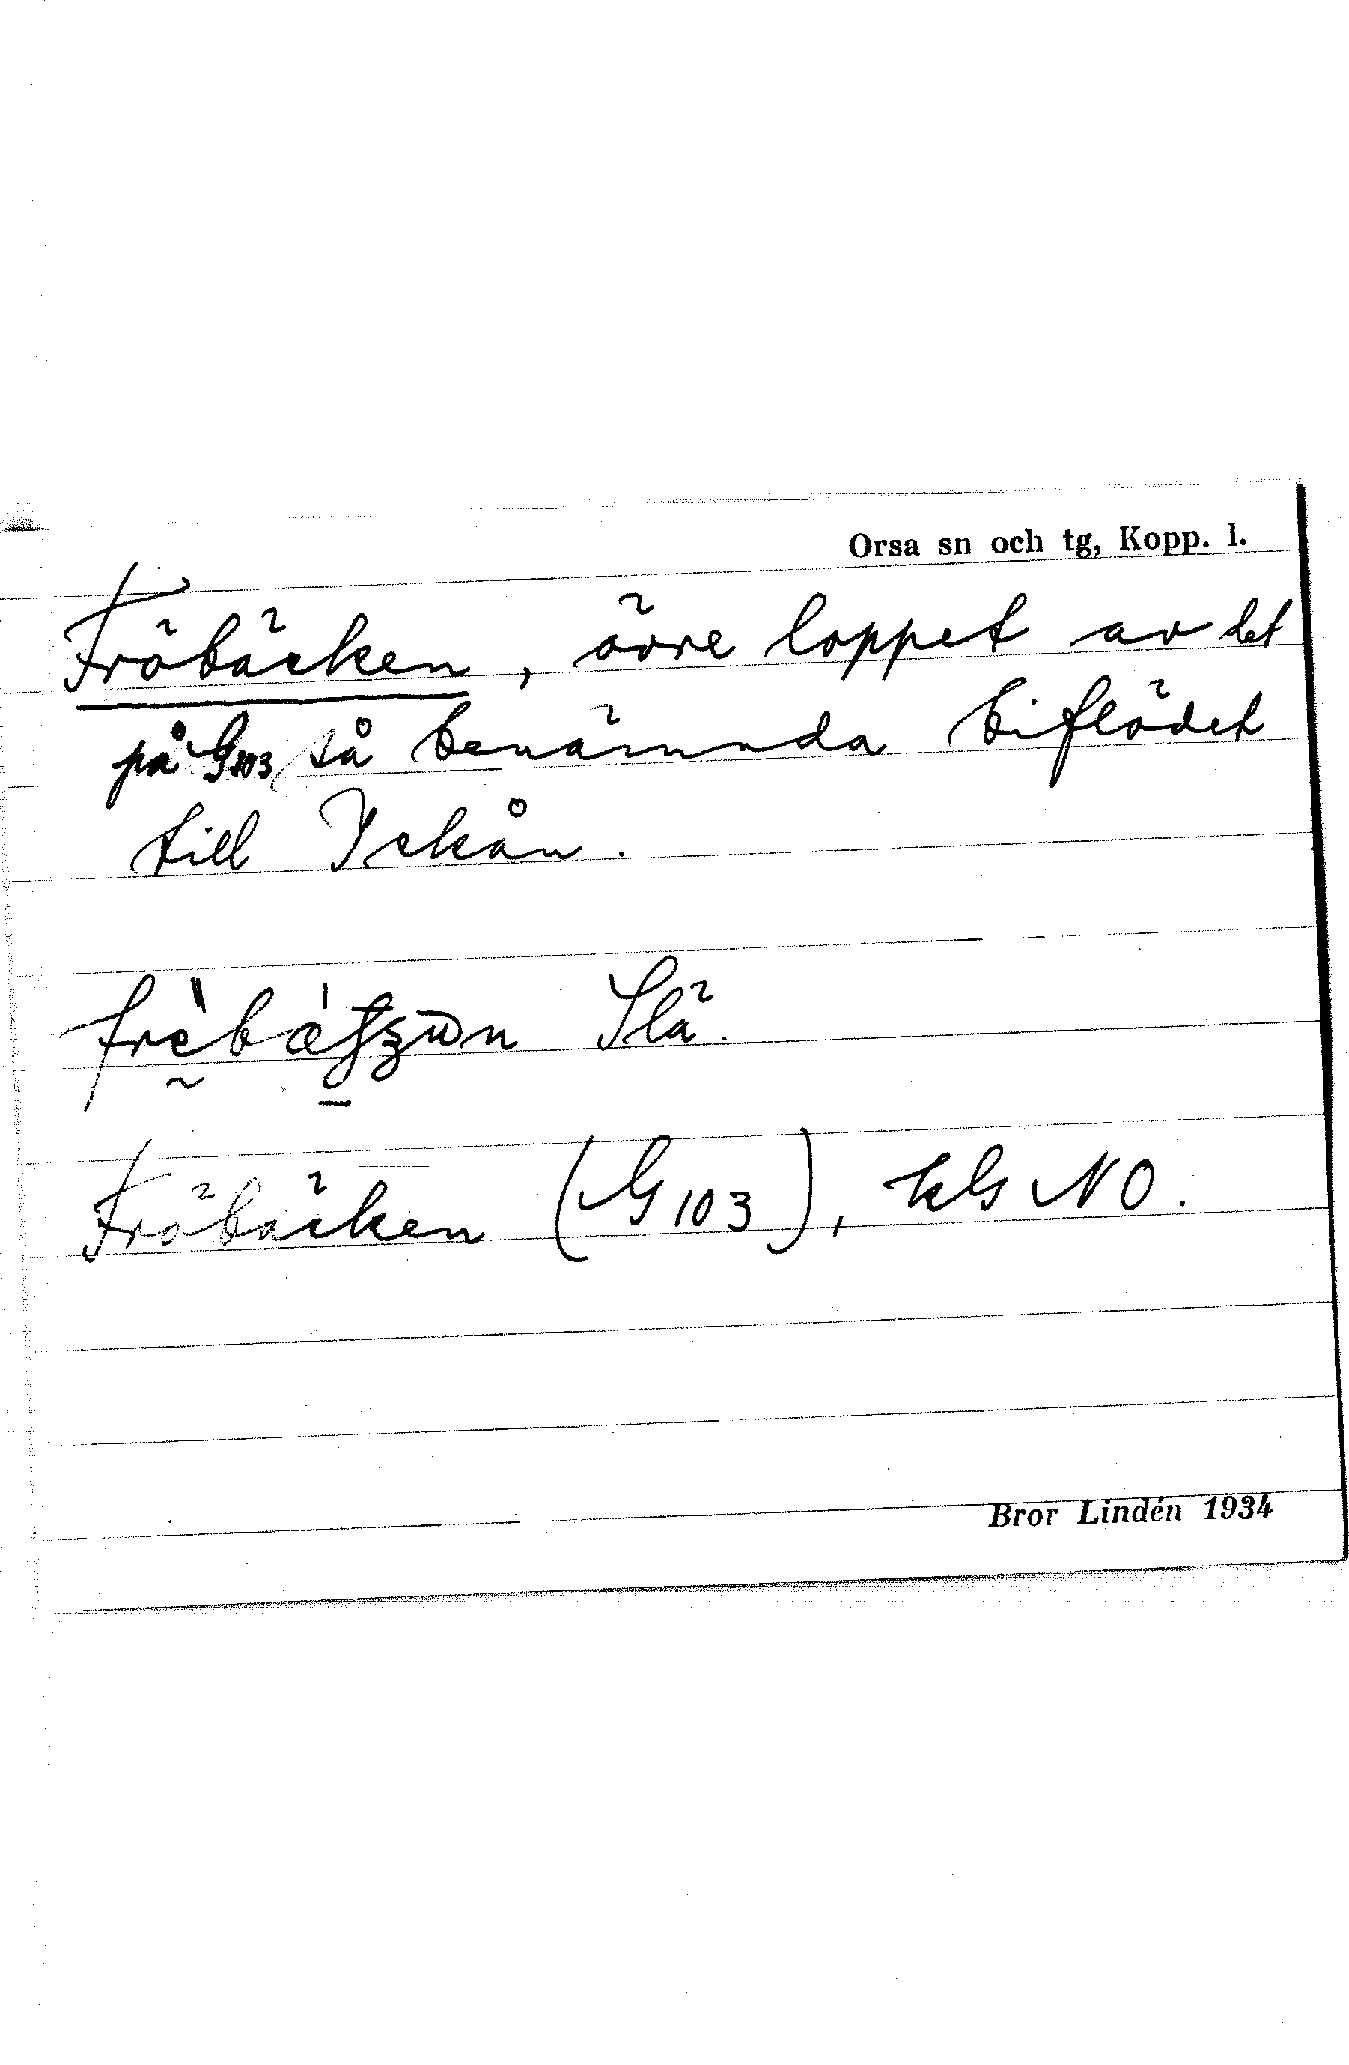 Orsa sn och tg, Kopp. l.
Fröbäcken, övre loppet av det
på G103 så benämnda biflödet
till Ickån.
Slä.
Fröbäcken (G103), kG NO.
Bror Lindén 1934